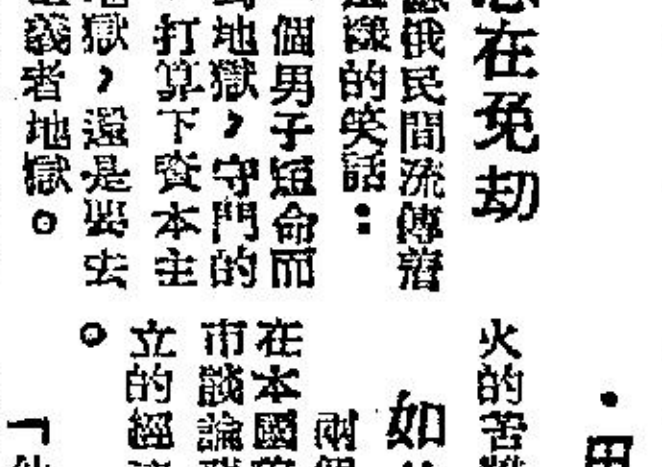 在免劫
俄民間流傳着
的笑話：
個男子短命而
地獄，守門的
打算下資本主
獄，還是要去
義者地獄。
・田
火的苦
如
兩個
在本國
市談論
立的經
。
「